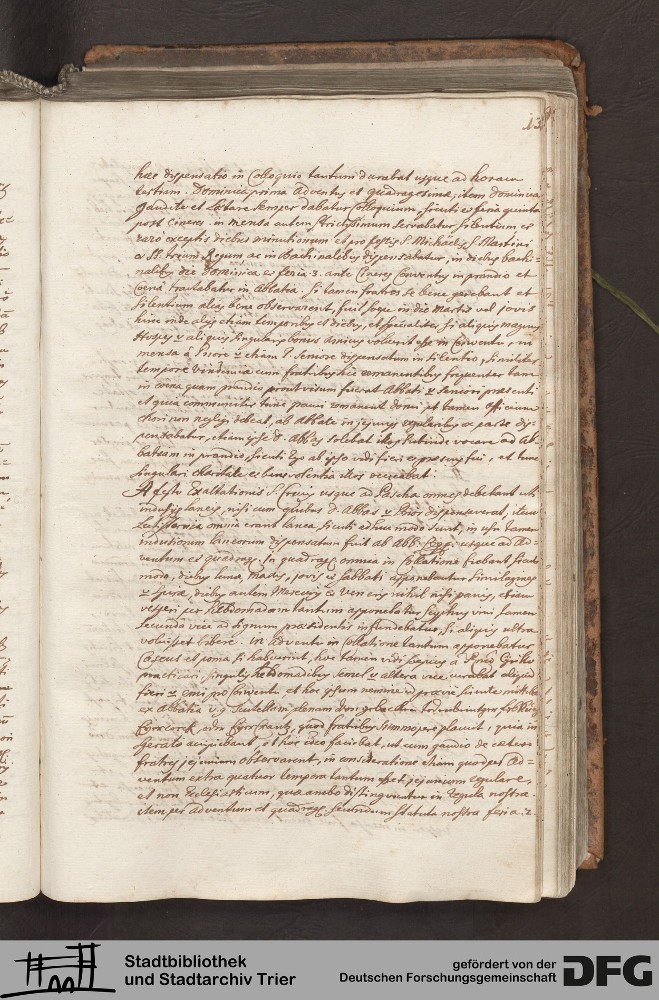 13
haec dispensatio in Colloquio tantum durabat usque ad horam
tertiam. Dominica prima Adventus et quadragesimae, item Dominica
Gaudete et Laetare semper dabatur Colloquium, sicuti et feria quinta
post Cineres. in mensa autem strictissimum servabatur silentium et
raro exceptis diebus minutionum et pro festis S. Michaelis S. Martini
SS. trium Regum ac in Bachinalibus dispensabatur, in diebus bachi-
nalibus die Dominica et feria .3. ante Cineres Conventus in prandio et
Caena tractabatur in Abbatia. si tamen fratres se bene gerebant et
silentium alias bene observarent, fuit saepe in die Martis vel Jovis
hinc inde alijs etiam temporibus et diebus, et specialiter si aliquis magnus
Hospes aliquis singularis bonus amicus voluerit esse in Conventu, in
mensa a Priore etiam Seniore dispensatum in silentio, similiter
tempore vindemiae cum fratribus hic remanentibus frequenter tam
in coena quam prandio prout visum fuerat Abbati Seniori praesenti
et quia communiter tunc pauci remanent domi et tamen officium
chori non negligi debeat, ab Abbate in jejunijs regularibus ex parte dis-
pensabatur, etiam ipse D. Abbas solebat illos subinde vocare ad Ab-
batiam in prandio, et hinc
singulari charitate et benevolentia illos
A festo Exaltationis S. Crucis usque ad Pascha omnes debebant uti
indusijs laneis, nisi cum quibus D. Abbas Prior dispensaverat, item
omnia erant lanea, sicuti adhuc modo sunt, in usu tamen
indusiorum laneorum dispensatum fuit ab Abb. usque ad Ad-
ventum et quadrag. In quadrag. omnia in Collatione fiebant sicut
modo, diebus lunae, Martis, Jovis et Sabbati apponebantur similagines
diebus autem Mercurij et Veneris nihil nisi panis, etiam
vesperi per hebdomadam tantum apponebatur scyphus vini, tamen
secunda vice ad signum praesidentis infundebatur, si aliquis ultra
voluisset bibere. in Adventu in Collatione tantum apponebatur
Caseus et poma si habuerint, hoc tamen vidi saepius a
practicari, singulis hebdomadibus semel altera vice curabat aliquid
fieri emi pro Conventu et hoc ipsum nemine
ex Abbatia
quod fratribus summopere placuit, quia in-
sperato accipiebant et hoc ideo faciebat, ut cum gaudio de caetero
fratres jejunium observarent, in consideratione etiam quod per Ad-
ventum extra quatuor tempora tantum esset jejunium regulare,
et non Ecclesiasticum, quae ambo distinguuntur in regula nostra.
item per Adventum et quadrag. secundum statuta nostra feria .2.
Stadtbibliothek
und Stadtarchiv Trier
gefördert von der
Deutschen Forschungsgemeinschaft
DFG